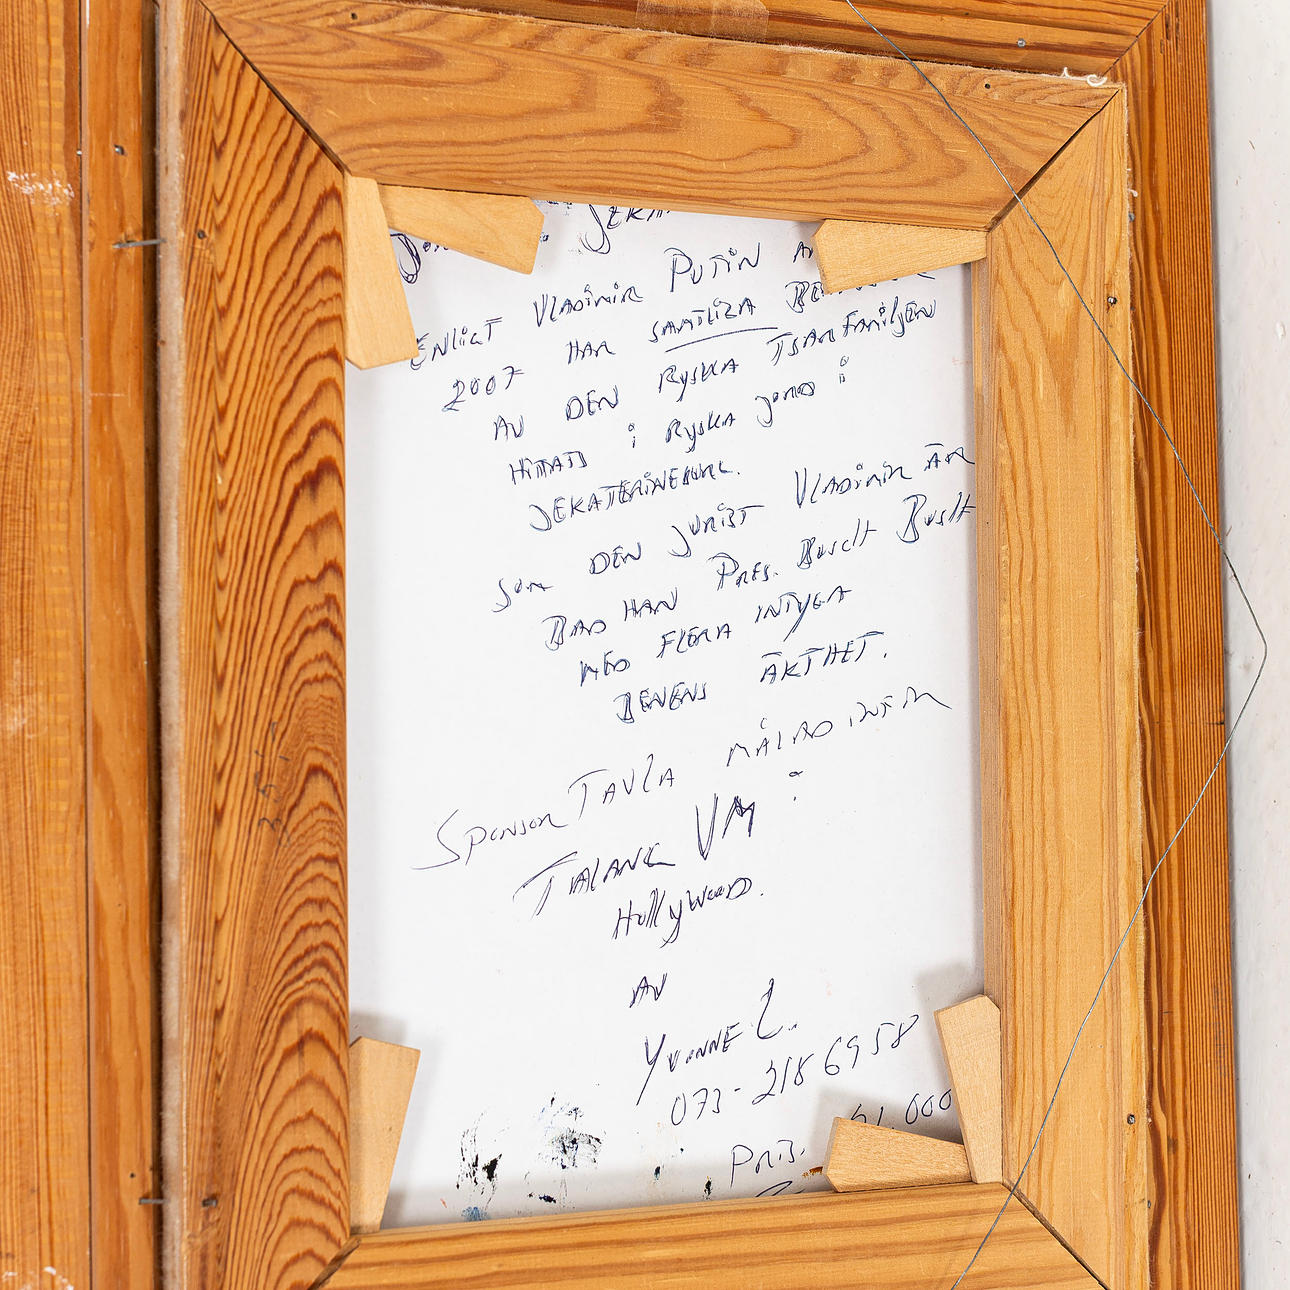 JEKA
ENLIGT VLADIMIR PUTIN
2007 HAR SAMTLIGA
AV DEN RYSKA TSARFAMILJEN
HITTATS i RYSKA JORD i
JEKATERINEBURG.
SOM DEN JURIST VLADIMIR ÄR
BAD HAN PRES. BUSCH BUSH
MED FLERA INTYGA
BENENS ÄKTHET.
SPONSOR TAVLA MÅLAD INFÖR
TALANG VM i
HOLLYWOOD.
AV
YVONNE L.
073-2186958
PRIS. 000